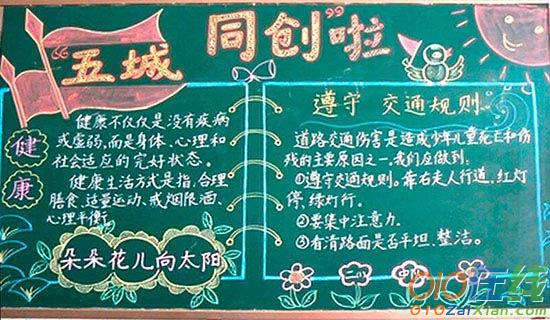 “五城同创”啦
健康
健康不仅仅是没有疾病
或虚弱,而是身体、心理和
社会适应的完好状态。
健康生活方式是指,合理
膳食、适量运动、戒烟限酒、
心理平衡。
朵朵花儿向太阳
遵守 交通规则。
道路交通伤害是造成少年儿童死亡和伤
残的主要原因之一,我们应做到:
①遵守交通规则。靠右走人行道,红灯
停,绿灯行。
②要集中注意力.
③看清路面是否平坦、整洁。
二(
010在线
010zaixian.com